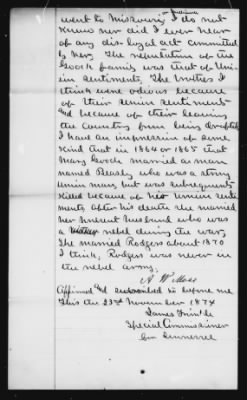 went to Missouri or Indiana I do not
know nor did I ever hear
of any disloyal act committed
by her. The reputation of the
Gooch family was that of Un-
ion sentiments. The brothers I
think were odious because
of their union sentiments
and because of their leaving
the Country from being conscripted
I have an impression of some
kind that in 1864 or 1865 that
Mary Gooch married a man
named Beasly who was a strong
Union man but was subsequently
killed because of his Union senti-
ments after his death she married
her present husband who was
a rebel during the war,
She married Rodgers about 1870
I think, Rodgers was never in
the rebel army.
A W Moss
Affirmed and subscribed to before me
this the 23rd November 1874
James Trimble
Special Commissioner